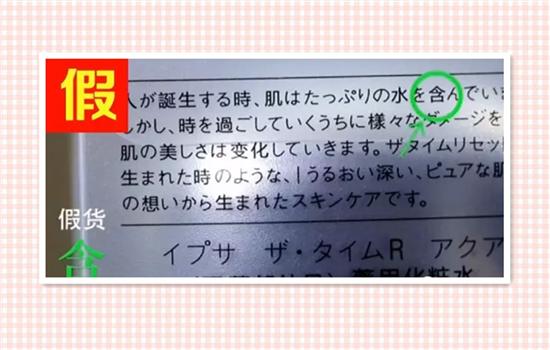 假
人が誕生する時、肌はたっぷりの水を含んでいま
しかし、時を過ごしていくうちに様々なダメージを
肌の美しさは変化していきます。ザタイムリセッ
生まれた時のような、うるおい深い、ピュアな肌
の想いから生まれたスキンケアです。
假货
含
イプサ ザ・タイムR アクア
薬用化粧水